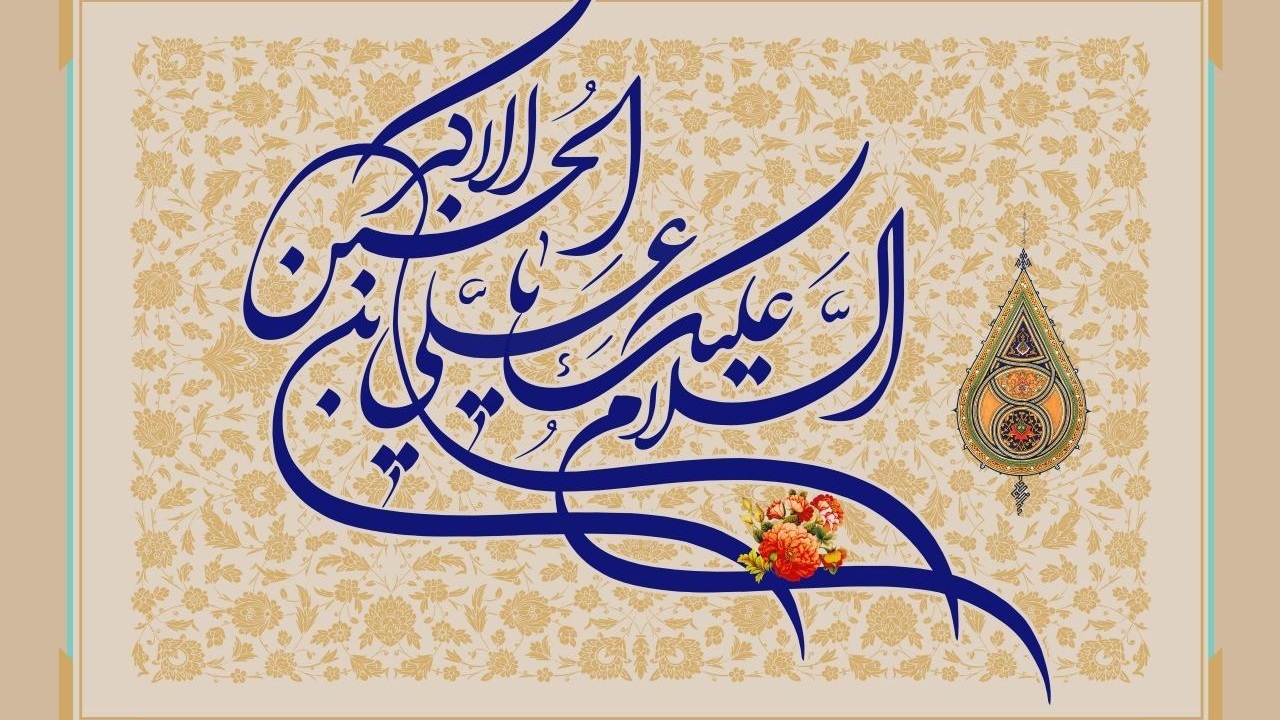 السلام علیک یا علی بن الحسین الاکبر